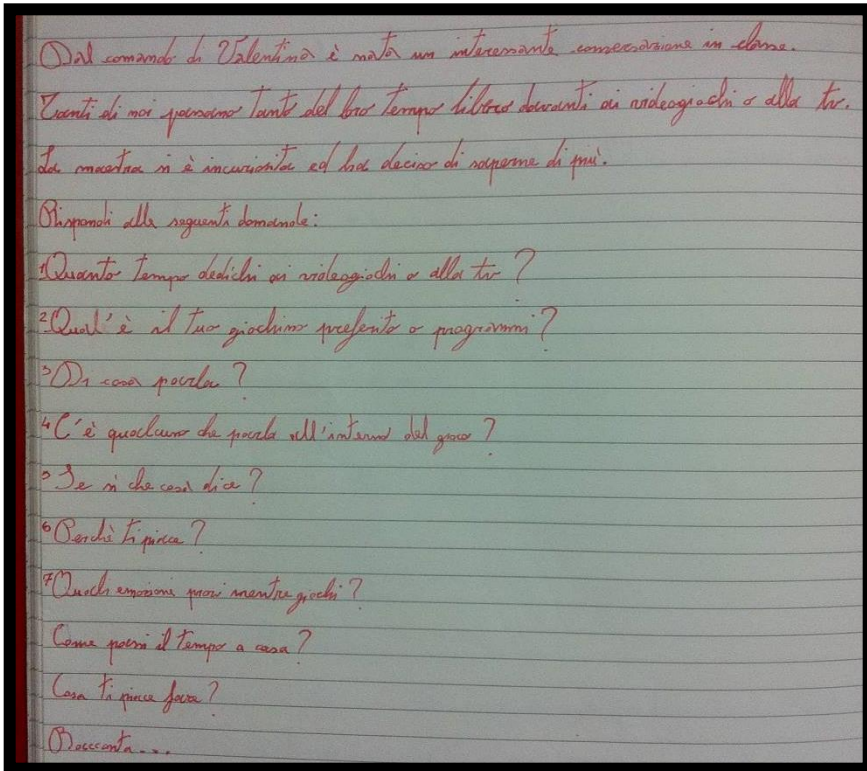 Dal comando di Valentina è nata un interessante conversazione in classe.
Tanti di noi passano tanto del loro tempo libero davanti ai videogiochi o alla tv.
La maestra si è incuriosita ed ha deciso di saperne di più.
Rispondi alle seguenti domande:
1 Quanto tempo dedichi ai videogiochi o alla tv?
2 Qual'è il tuo giochino preferito o programmi?
3 Di cosa parla?
4 C'è qualcuno che parla all'interno del gioco?
5 Se si che cosa dice?
6 Perchè ti piace?
7 Quali emozioni provi mentre giochi?
Come passi il tempo a casa?
Cosa ti piace fare?
Racconta...